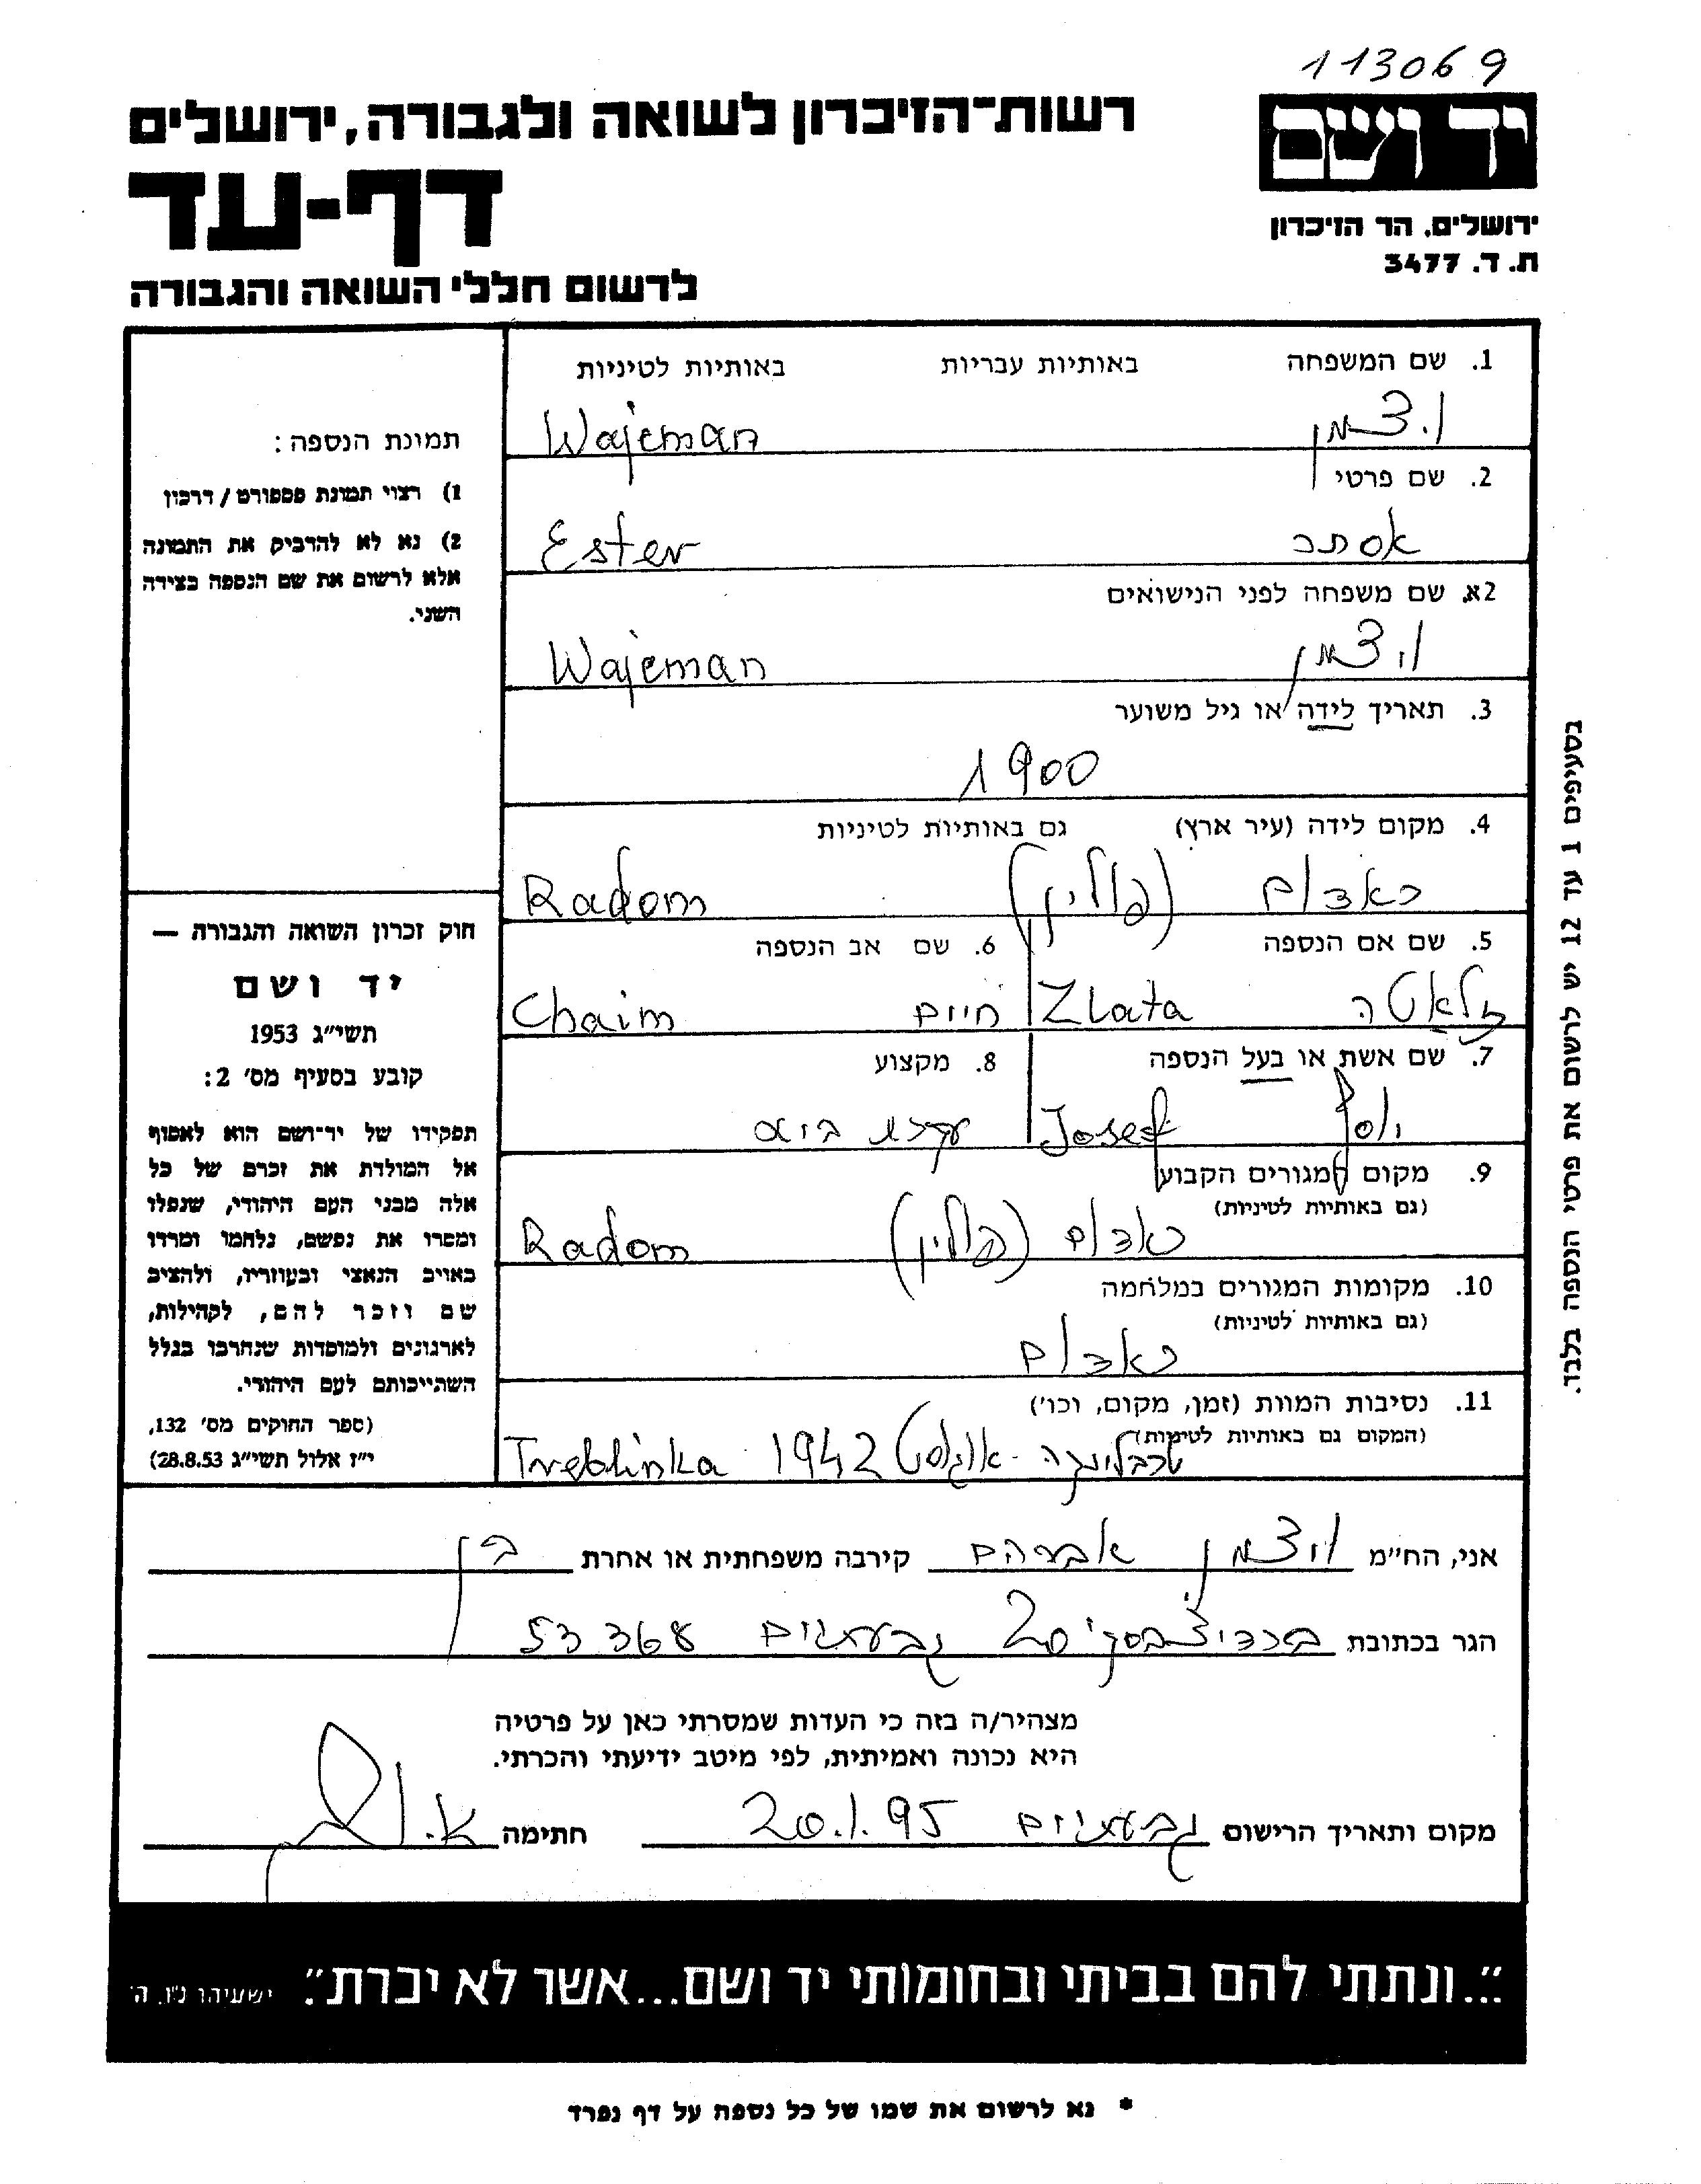 113069
רשות־הזיכרון לשואה ולגבורה, ירושלים
יד ושם
דף-עד
ירושלים, הר הזיכרון
ת. ד. 3477
לרשום חללי השואה והגבורה
1. שם המשפחה באותיות עבריות באותיות לטיניות
ויצמן Wajcman
2. שם פרטי
אסתר Ester
2א. שם משפחה לפני הנישואים
ויצמן Wajcman
3. תאריך לידה או גיל משוער
1900
4. מקום לידה (עיר ארץ) גם באותיות לטיניות
ראדום (פולין) Radom
5. שם אם הנספה 6. שם אב הנספה
זלאטה Zlata חיים Chaim
7. שם אשת או בעל הנספה 8. מקצוע
יוסף Josef עקרת בית
9. מקום המגורים הקבוע
(גם באותיות לטיניות)
ראדום (פולין) Radom
10. מקומות המגורים במלחמה
(גם באותיות לטיניות)
ראדום
11. נסיבות המוות (זמן, מקום, וכו')
(המקום גם באותיות לטיניות)
טרבלינקה - אוגוסט 1942 Treblinka
תמונת הנספה:
1) רצוי תמונת פספורט / דרכון
2) נא לא להדביק את התמונה
אלא לרשום את שם הנספה בצידה
השני.
חוק זכרון השואה והגבורה —
יד ושם
תשי״ג 1953
קובע בסעיף מס׳ 2:
תפקידו של יד־ושם הוא לאסוף
אל המולדת את זכרם של כל
אלה מבני העם היהודי, שנפלו
ומסרו את נפשם, נלחמו ומרדו
באויב הנאצי ובעוזריו, ולהציב
שם וזכר להם, לקהילות,
לארגונים ולמוסדות שנחרבו בגלל
השתייכותם לעם היהודי.
(ספר החוקים מס׳ 132,
י״ז אלול תשי״ג 28.8.53)
בסעיפים 1 עד 12 יש לרשום את פרטי הנספה בלבד.
אני, הח״מ ויצמן אברהם קירבה משפחתית או אחרת בן
הגר בכתובת ברדיצ'בסקי 20 גבעתיים 53368
מצהיר/ה בזה כי העדות שמסרתי כאן על פרטיה
היא נכונה ואמיתית, לפי מיטב ידיעתי והכרתי.
מקום ותאריך הרישום גבעתיים 20.1.95 חתימה
״...ונתתי להם בביתי ובחומותי יד ושם...אשר לא יכרת״. ישעיהו נ״ו, ה׳
* נא לרשום את שמו של כל נספה על דף נפרד